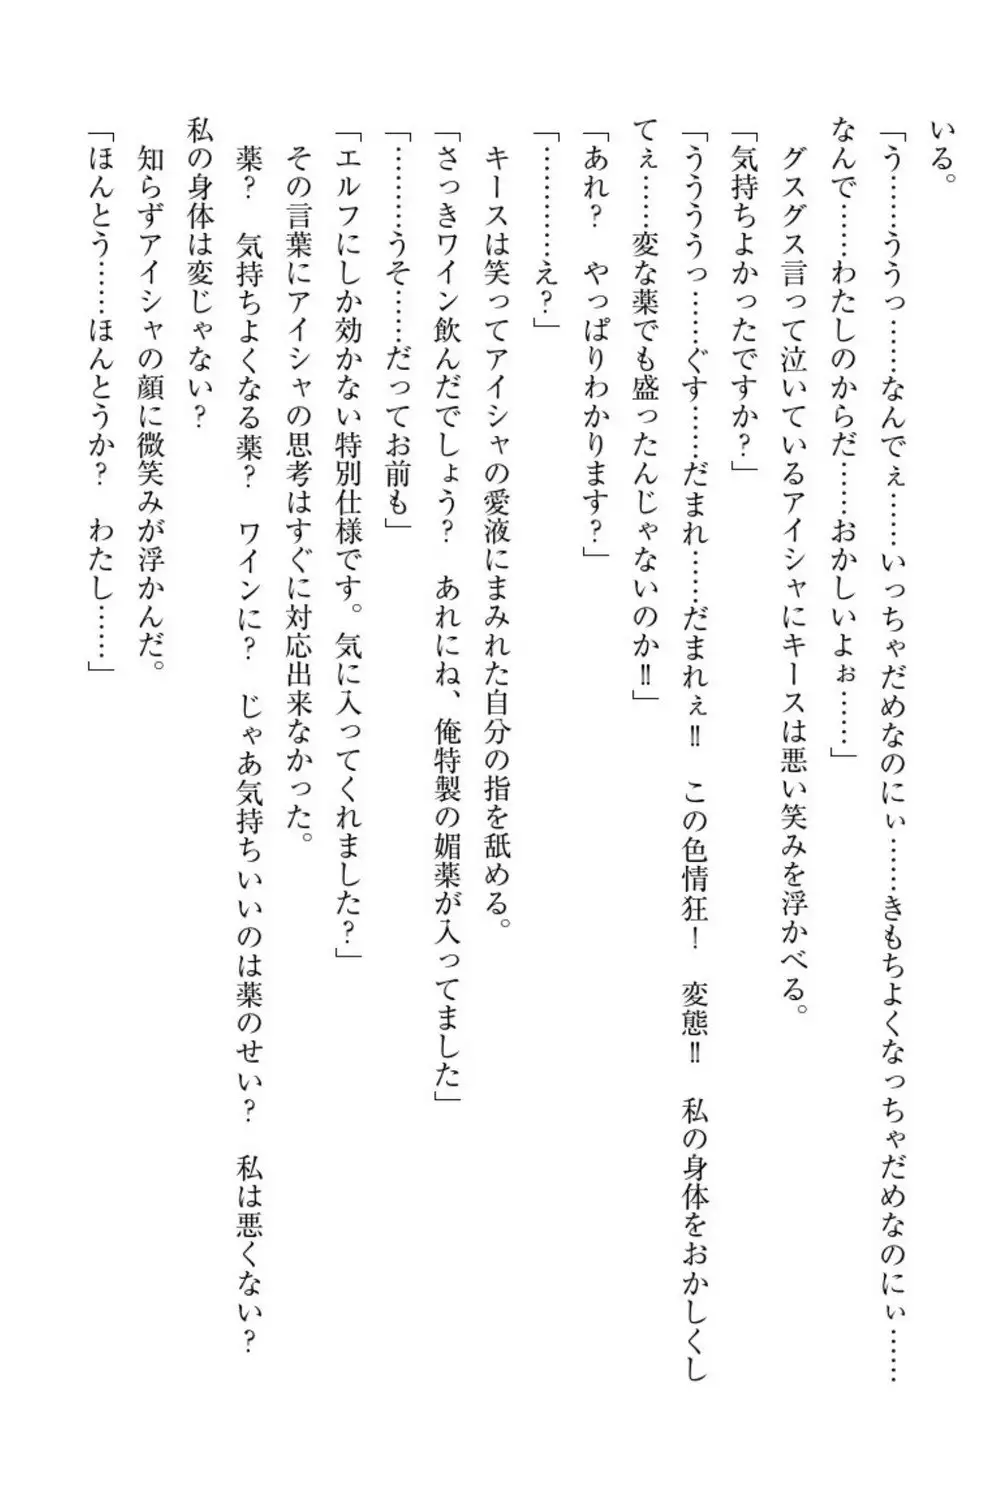 いる。
「う………ううっ………なんでぇ……いっちゃだめなのにぃ……きもちよくなっちゃだめなのにぃ……
なんで……わたしのからだ……おかしいよぉ……」
　グスグス言って泣いているアイシャにキースは悪い笑みを浮かべる。
「気持ちよかったですか？」
「ううううっ……ぐす……だまれ……だまれぇ‼　この色情狂！　変態‼　私の身体をおかしくし
てぇ……変な薬でも盛ったんじゃないのか‼」
「あれ？　やっぱりわかります？」
「…………え？」
　キースは笑ってアイシャの愛液にまみれた自分の指を舐める。
「さっきワイン飲んだでしょう？　あれにね、俺特製の媚薬が入ってました」
「………うそ……だってお前も」
「エルフにしか効かない特別仕様です。気に入ってくれました？」
　その言葉にアイシャの思考はすぐに対応出来なかった。
　薬？　気持ちよくなる薬？　ワインに？　じゃあ気持ちいいのは薬のせい？　私は悪くない？
私の身体は変じゃない？
　知らずアイシャの顔に微笑みが浮かんだ。
「ほんとう……ほんとうか？　わたし……」